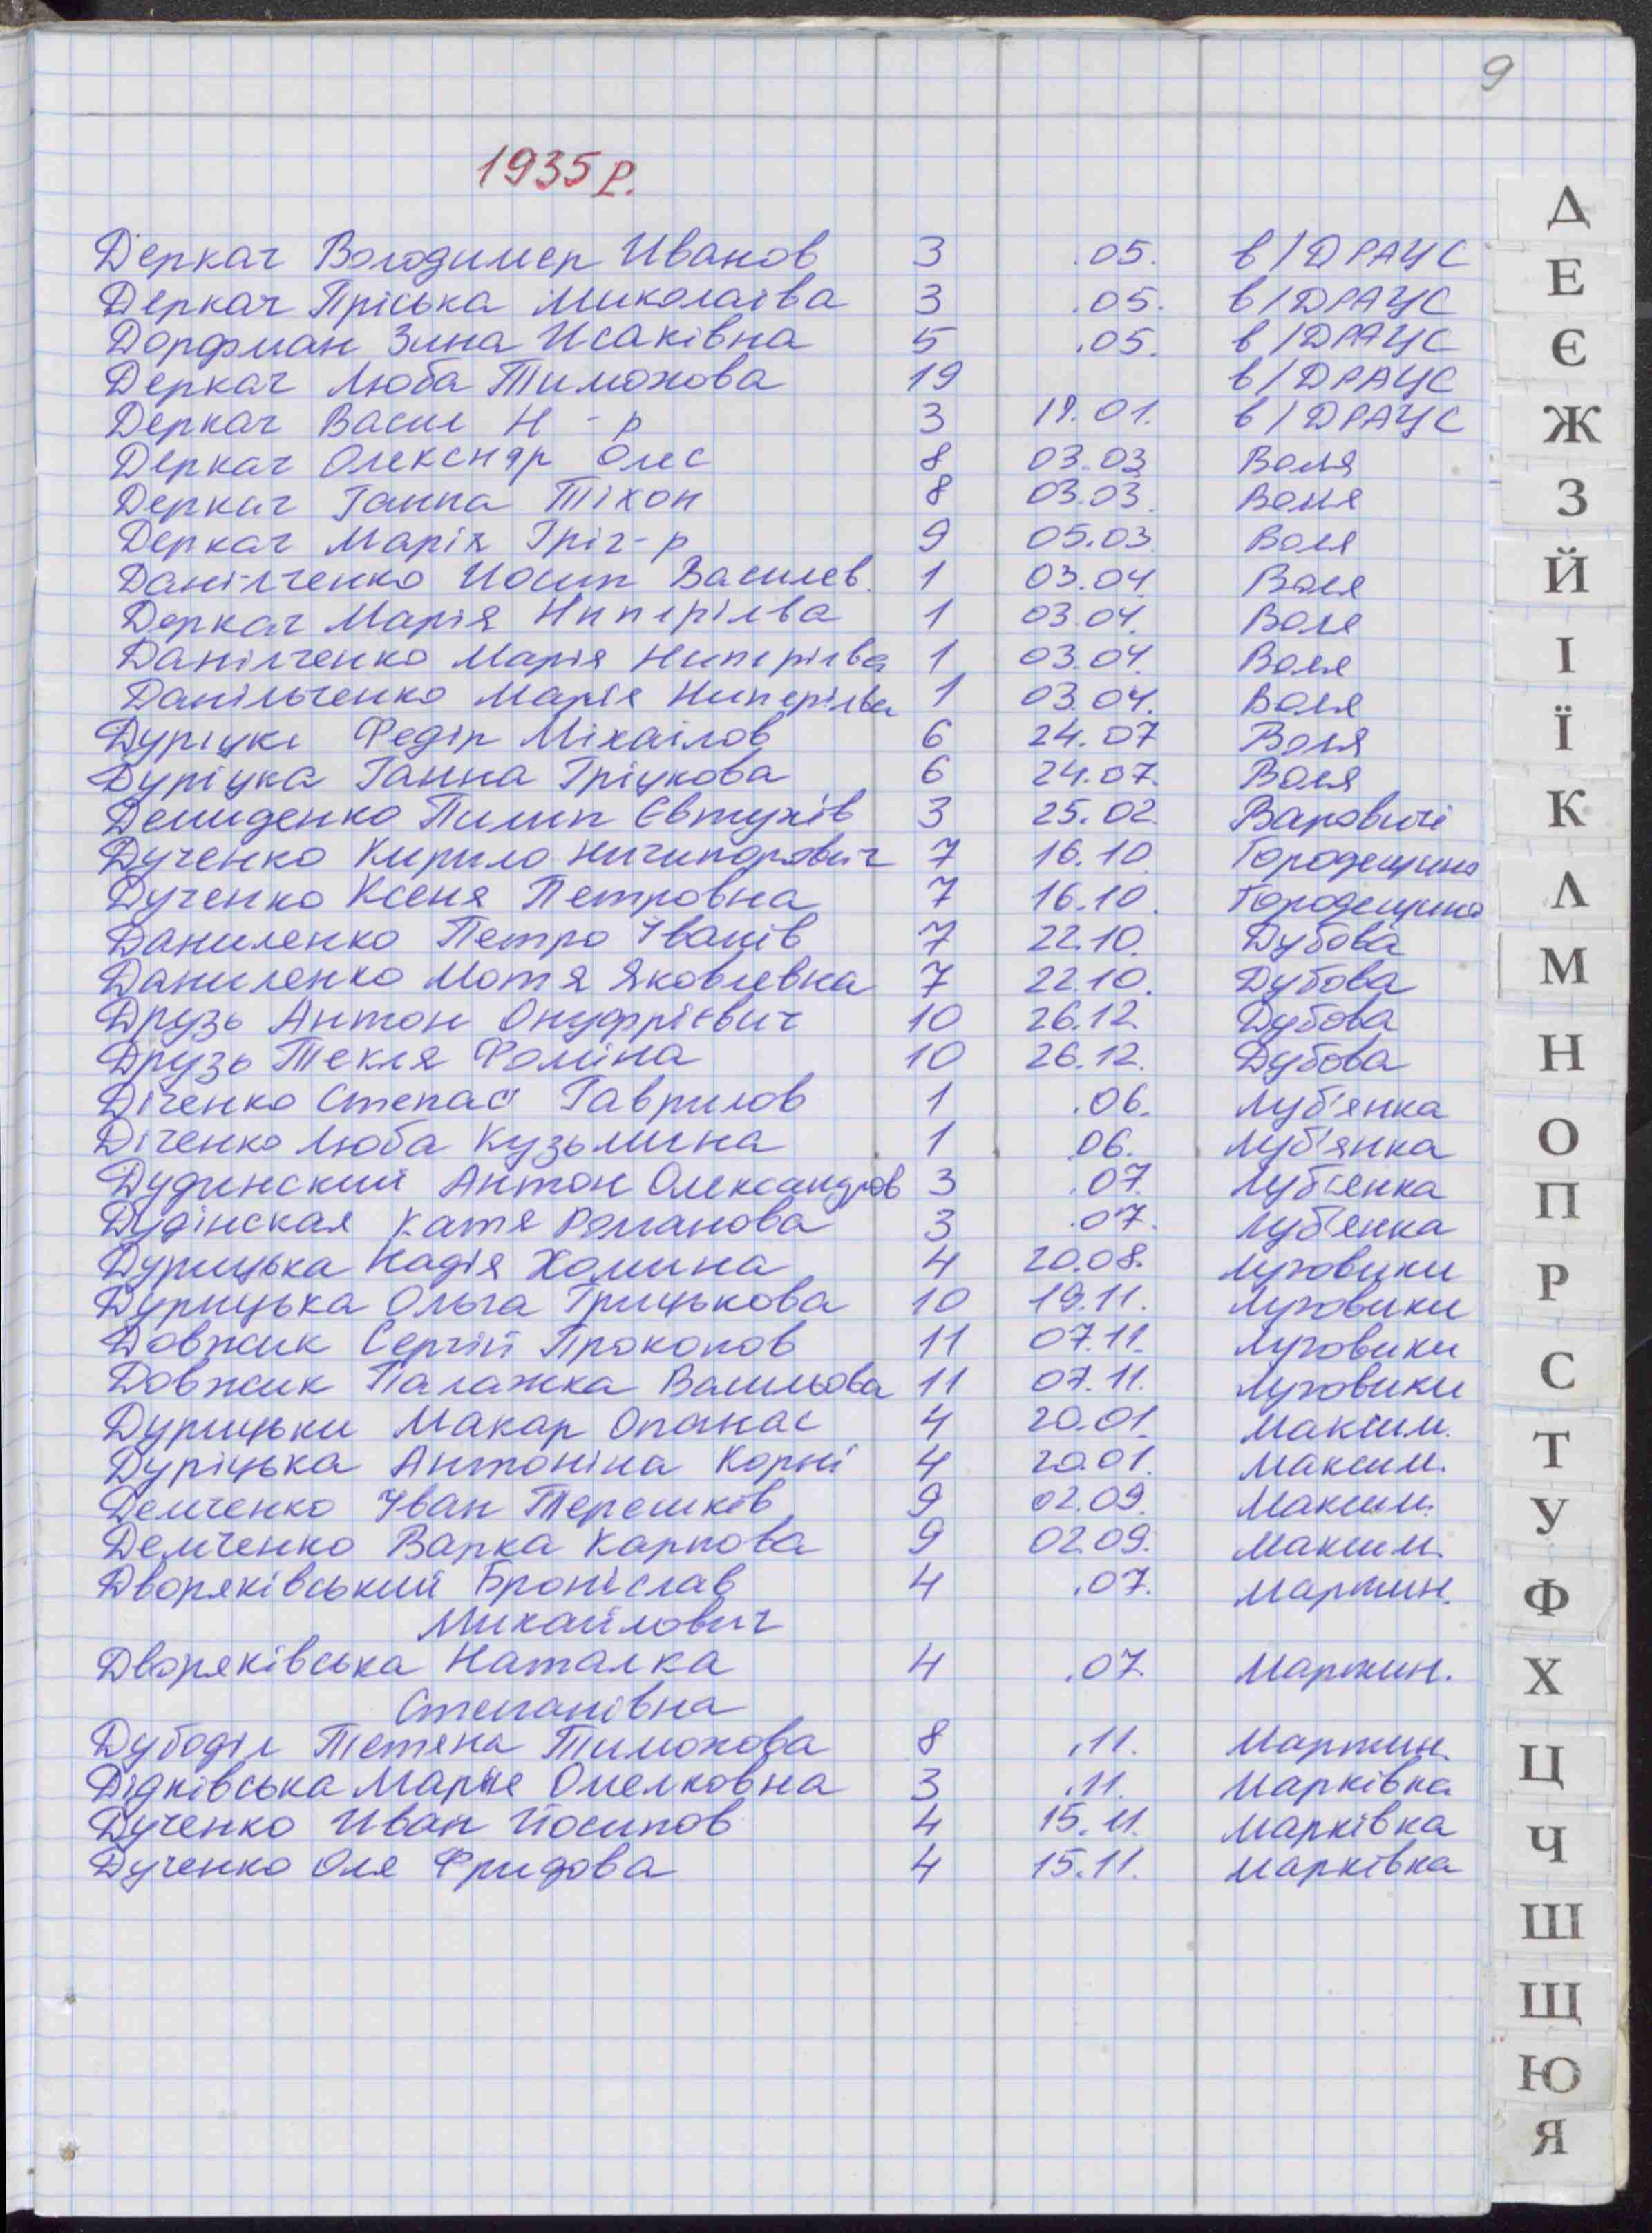 9
1935 р.
Деркач Володимер Иванов 3 .05. в/ДРАЦС
Деркач Пріська Миколаїва 3 .05. в/ДРАЦС
Дорфман Зина Исаківна 5 .05. в/ДРАЦС
Деркач Люба Тимохова 19 в/ДРАЦС
Деркач Васил Н-р 3 19.01. в/ДРАЦС
Деркач Олександр Олес 8 03.03 Воля
Деркач Ганна Тіхон 8 03.03. Воля
Деркач Марія Гріг-р 9 05.03 Воля
Данілченко Иосип Василев. 1 03.04. Воля
Деркач Марія Ниперіева 1 03.04. Воля
Данілченко Марія Ниперіева 1 03.04. Воля
Данільченко Марія Ниперіева 1 03.04. Воля
Дуріцкі Федір Міхаілов 6 24.07 Воля
Дуріцка Ганна Гріцкова 6 24.07. Воля
Демиденко Пилип Євтухів 3 25.02 Варовичі
Дученко Кирило Ничипорович 7 16.10 Городещина
Дученко Ксеня Петровна 7 16.10. Городещина
Даниленко Петро Іванів 7 22.10. Дубова
Даниленко Мотя Яковлевна 7 22.10. Дубова
Друзь Антон Онуфрієвич 10 26.12. Дубова
Друзь Текля Фоміна 10 26.12. Дубова
Діченко Степан Гаврилов 1 .06. Луб'янка
Діченко Люба Кузьмина 1 06. Луб'янка
Дудинский Антон Олександров 3 .07. Луб'янка
Дудінская Катя Романова 3 .07. Луб'янка
Дурицька Надія Хомина 4 20.08. Луговики
Дурицька Ольга Грицькова 10 19.11. Луговики
Довжик Сергій Прокопов 11 07.11. Луговики
Довжик Палажка Васильова 11 07.11. Луговики
Дурицьки Макар Опанас 4 20.01. Максим.
Дуріцька Антоніна Корні 4 20.01. Максим.
Демченко Іван Терешків 9 02.09. Максим.
Демченко Варка Карпова 9 02.09. Максим.
Дворяківський Броніслав 4 .07. Мартин.
Михайлович
Дворяківська Наталка 4 .07. Мартин.
Степанівна
Дубоділ Тетяна Тимохова 8 .11. Мартин.
Дідківська Марія Омелковна 3 .11. Марківка
Дученко Иван Йосипов 4 15.11. Марківка
Дученко Оля Фридова 4 15.11. Марківка
Д
Е
Є
Ж
З
Й
І
Ї
К
Л
М
Н
О
П
Р
С
Т
У
Ф
Х
Ц
Ч
Ш
Щ
Ю
Я